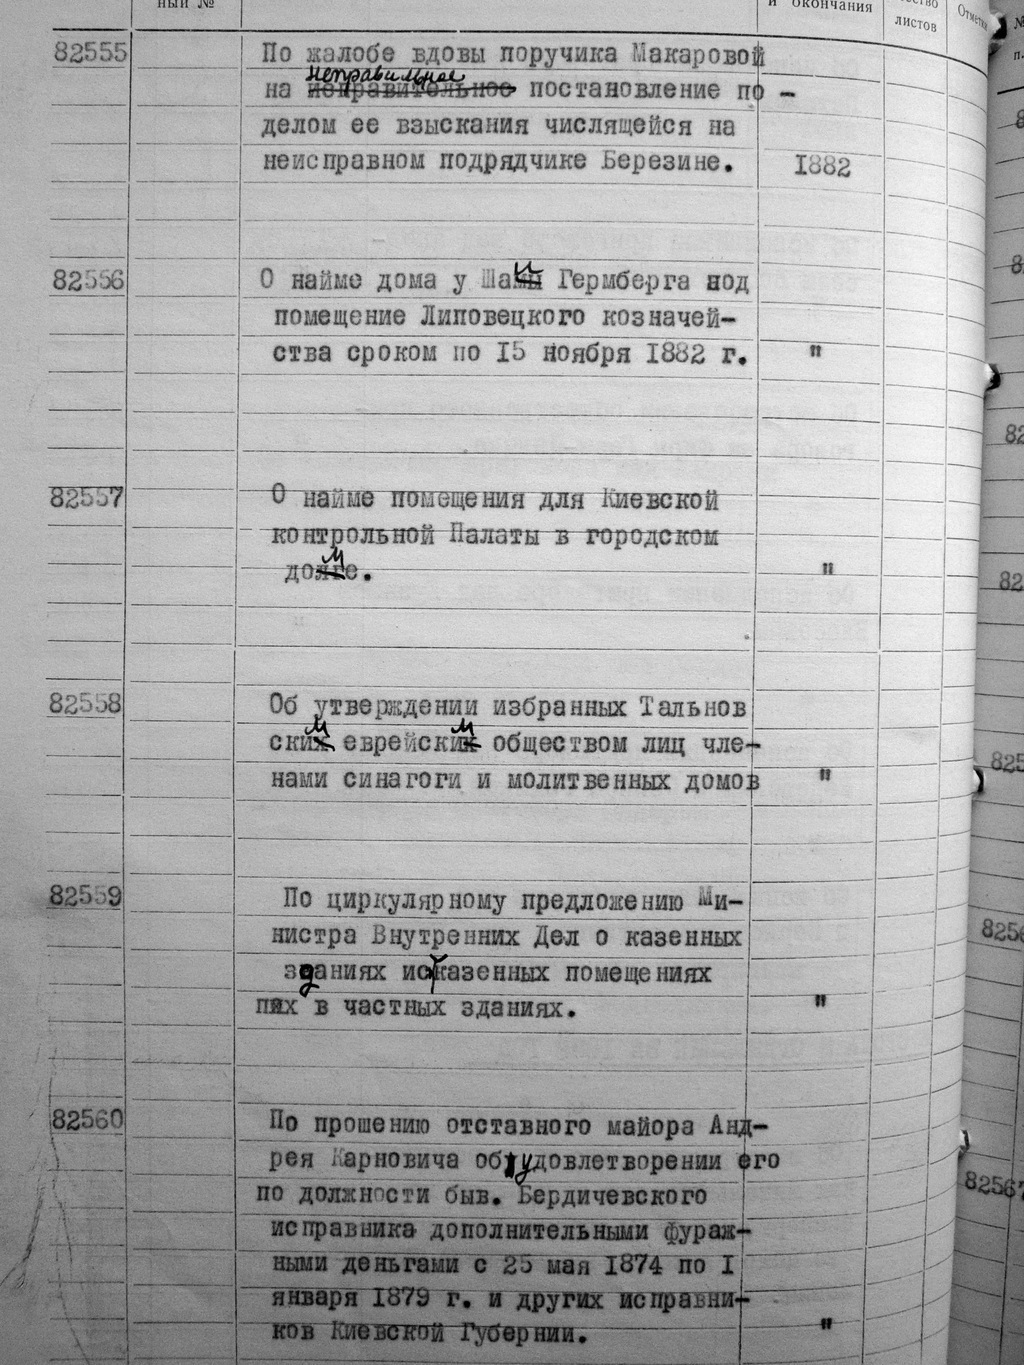 ный №
и окончания
листов
Отметки
82555 По жалобе вдовы поручика Макаровой
неправильное
на неправительное постановление по -
делом ее взыскания числящейся на
неисправном подрядчике Березине. 1882
82556 О найме дома у Шамы Гермберга под
помещение Липовецкого козначей-
ства сроком по 15 ноября 1882 г. "
82557 О найме помещения для Киевской
контрольной Палаты в городском
м
долге. "
82558 Об утверждении избранных Тальнов
м м
ских еврейских обществом лиц чле-
нами синагоги и молитвенных домов "
82559 По циркулярному предложению Ми-
нистра Внутренних Дел о казенных
зданиях и казенных помещениях
в частных зданиях. "
82560 По прошению отставного майора Анд-
рея Карновича об удовлетворении его
по должности быв. Бердичевского
исправника дополнительными фураж-
ными деньгами с 25 мая 1874 по I
января 1879 г. и других исправни-
ков Киевской Губернии. "
82567